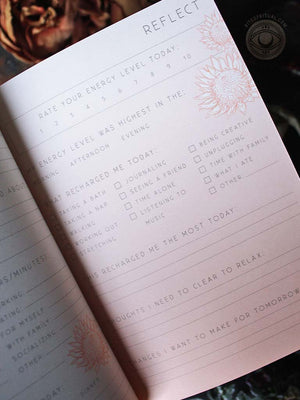 REFLECT
RATE YOUR ENERGY LEVEL TODAY:
1 2 3 4 5 6 7 8 9 10
ENERGY LEVEL WAS HIGHEST IN THE:
AFTERNOON EVENING
RECHARGED ME TODAY:
TAKING A BATH
TAKING A NAP
WALKING
WORKING OUT
STRETCHING
JOURNALING
SEEING A FRIEND
TIME ALONE
LISTENING TO
MUSIC
BEING CREATIVE
UNPLUGGING
TIME WITH FAMILY
WHAT I ATE
OTHER
THIS RECHARGED ME THE MOST TODAY
I NEED TO CLEAR TO RELAX:
I WANT TO MAKE FOR TOMORROW
FOR MYSELF
WITH FAMILY
SOCIALIZING
OTHER